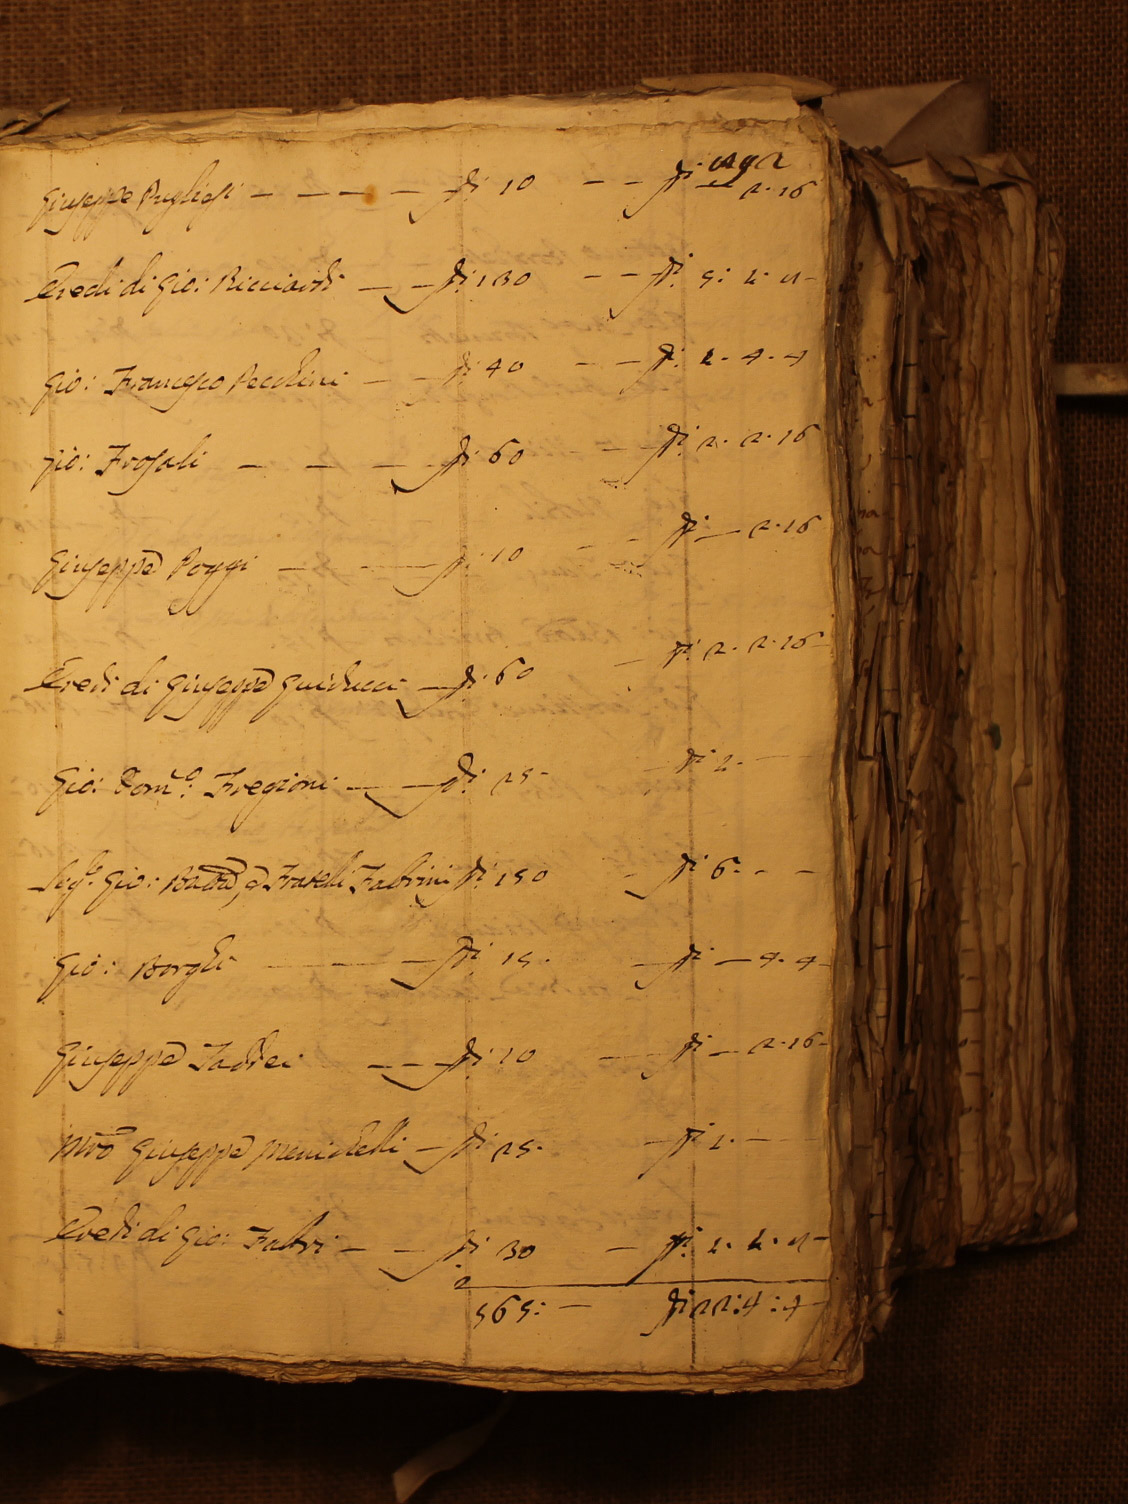 Giuseppe Pugliesi — — — — fi: 10 — — fi: — 2.16
Eredi di Gio: Ricciardi — — fi: 130 — — fi: 5: 1: 4 -
Gio: Francesco Pecchini — — fi: 40 — — fi: 1. 4. 4
Gio: Frosali — — — fi: 60 — fi: 2. 2.16
Giuseppe Poggi — — fi: 10 — — fi: — 2.16
Eredi di Giuseppe Guiducci — fi: 60 — fi: 2. 2.16
Gio: Dom.co: Fregioni — — fi: 25 - — fi: 1. —
Gio: Batta, e Fratelli Fabrini fi: 150 — fi: 6. - -
Gio: Borghi — — — fi: 15. — fi: — 4. 4
Giuseppe Taddei — — — fi: 10 — — fi: — 2.16 -
Giuseppe Menichelli — fi: 25. — fi: 1. — —
Eredi di Gio: Fabbri — — fi: 30 — fi: 1. 1. 4 -
565: — fi: 22:4:4